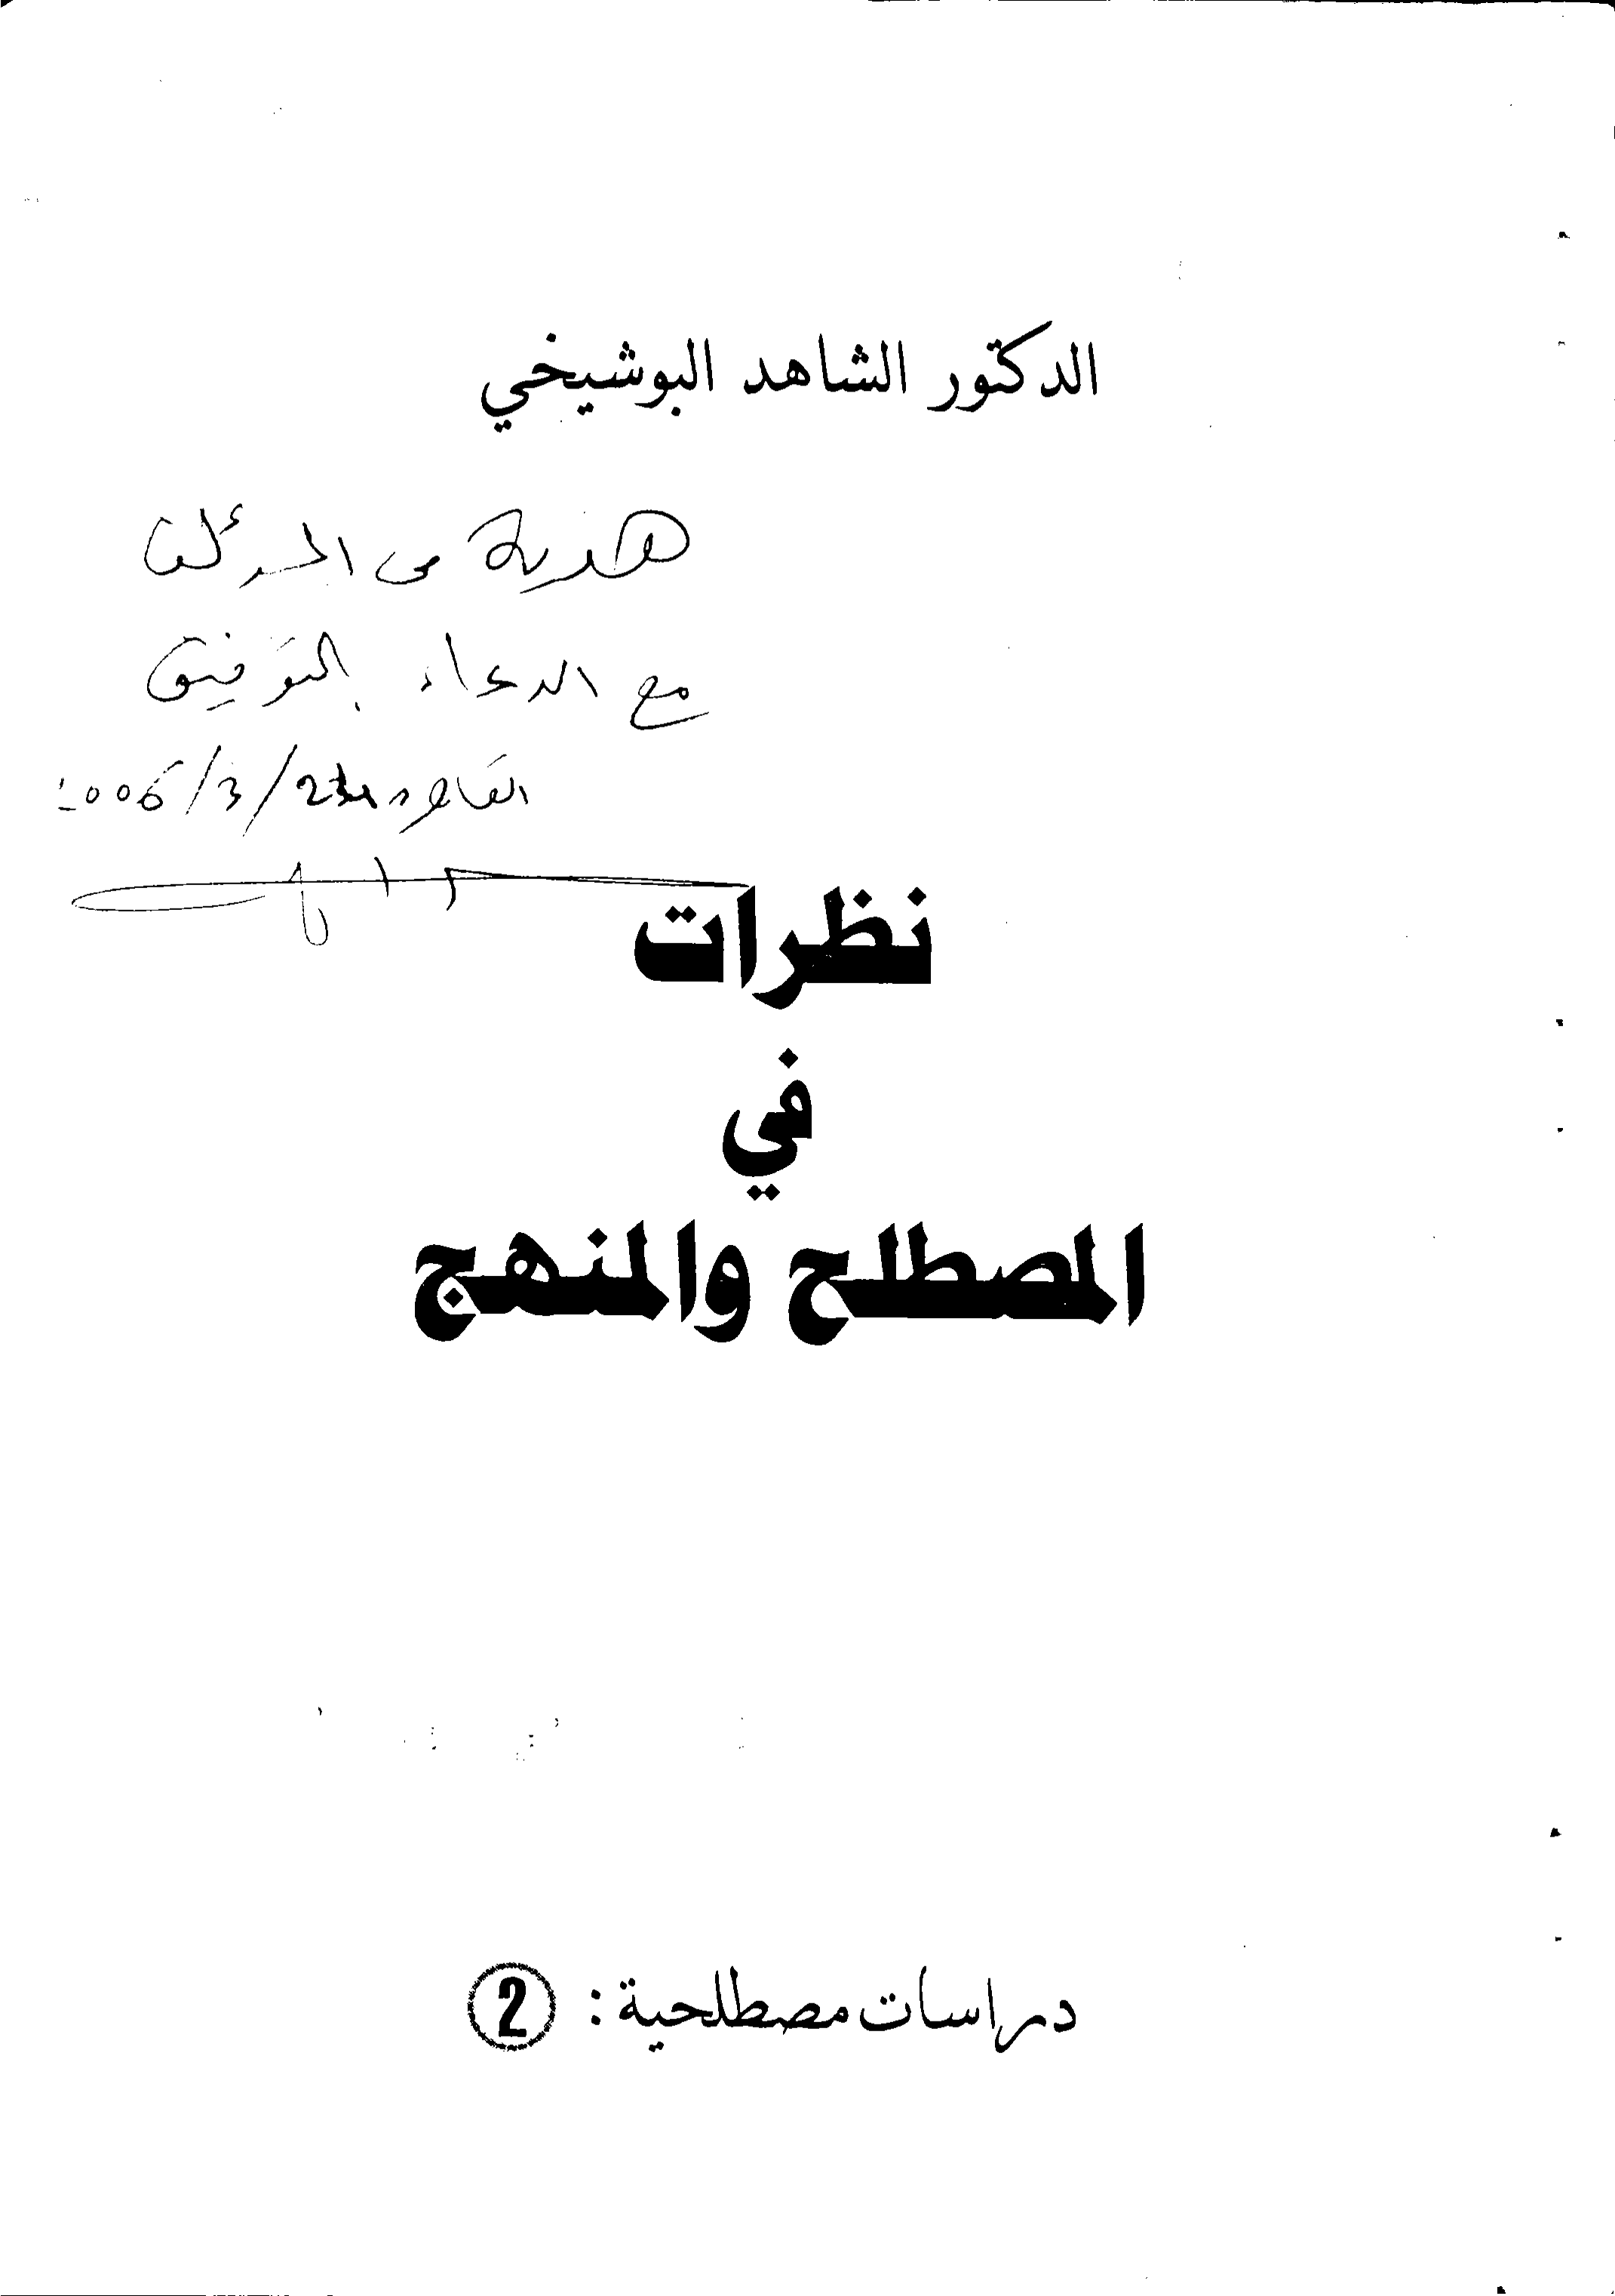 الدكتور الشاهد البوشيخي
هدية من المؤلف
مع الدعاء بالتوفيق
القاهرة /3/2006
نظرات
في
المصطلح والمنهج
دراسات مصطلحية: 2